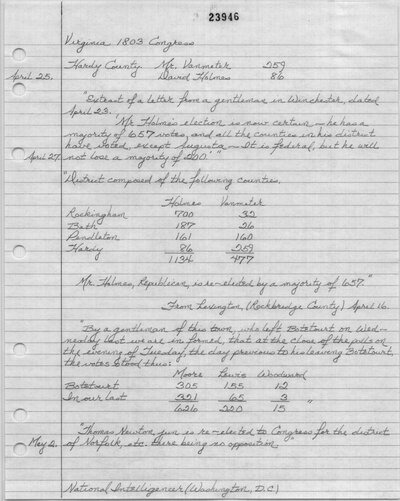 23946
Virginia 1803 Congress
Hardy County Mr. Vanmeter 259
April 25. David Holmes 86
"Extract of a letter from a gentleman in Winchester, dated
April 23. 'Mr Holmes's election is now certain - he has a
majority of 657 votes, and all the counties in his district
have voted, except Augusta - It is federal, but he will
April 27. not lose a majority of 200.'"
"District composed of the following counties.
Holmes Vanmeter
Rockingham 700 32
Bath 187 26
Pendleton 161 160
Hardy 86 259
1134 477
Mr. Holmes, Republican, is re-elected by a majority of 657."
From Lexington, (Rockbridge County) April 16.
"By a gentleman of this town, who left Botetourt on Wed-
nesday last we are informed, that at the close of the polls on
the evening of Tuesday, the day previous to his leaving Botetourt,
the votes stood thus:
Moore Lewis Woodward
Botetourt 305 155 12
In our last 321 65 3
626 220 15 "
"Thomas Newton, jun is re-elected to Congress for the district
May 2. of Norfolk, etc. there being no opposition"
National Intelligencer (Washington, D.C)